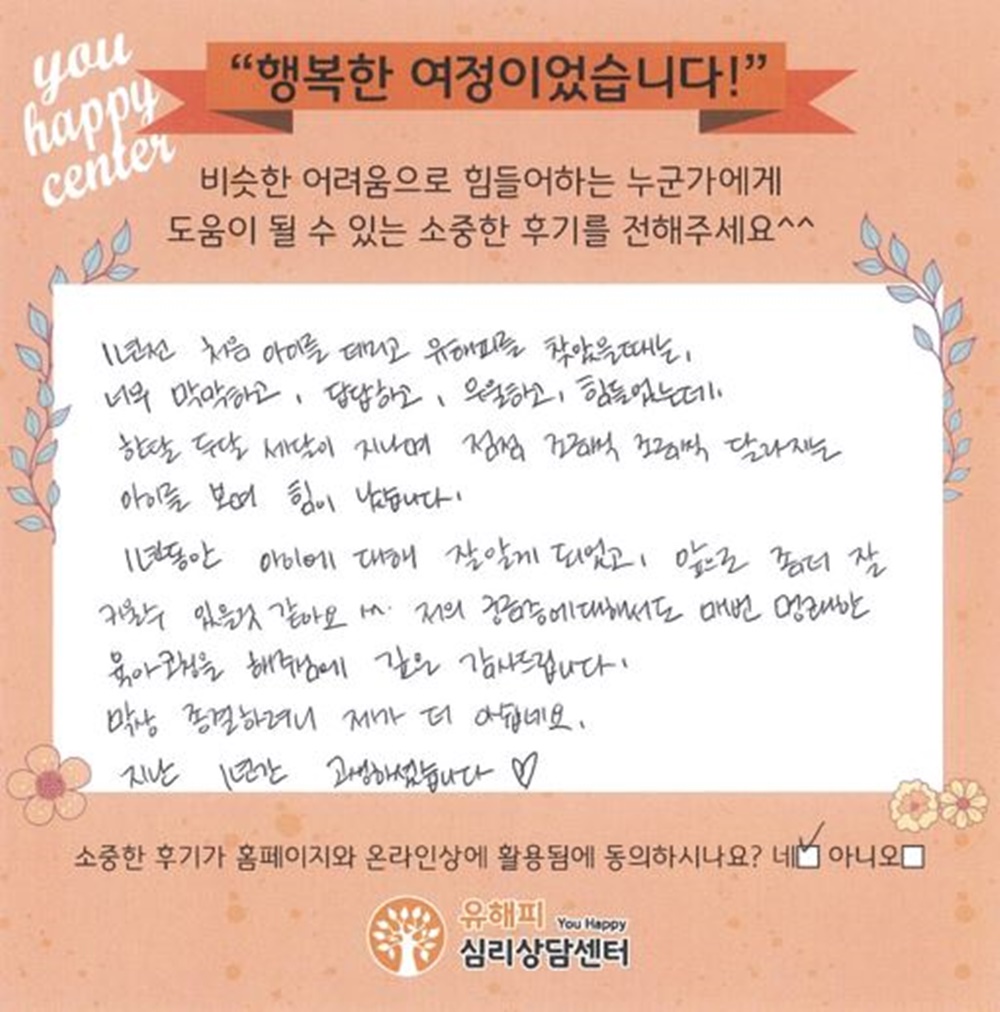 you
happy
center
“행복한 여정이었습니다!”
비슷한 어려움으로 힘들어하는 누군가에게
도움이 될 수 있는 소중한 후기를 전해주세요^^
1년전 처음 아이를 데리고 유해피를 찾았을때는,
너무 막막하고, 답답하고, 우울하고, 힘들었는데,
한달 두달 세달이 지나며 점점 조금씩 조금씩 달라지는
아이를 보며 힘이 났습니다.
1년동안 아이에 대해 잘알게 되었고, 앞으로 좀더 잘
키울수 있을것 같아요 ^^. 저의 궁금증에대해서도 매번 명쾌한
육아코칭을 해주심에 깊은 감사드립니다.
막상 종결하려니 제가 더 아쉽네요.
지난 1년간 고생하셨습니다 ♡
소중한 후기가 홈페이지와 온라인상에 활용됨에 동의하시나요? 네☑ 아니오☐
유해피 You Happy
심리상담센터